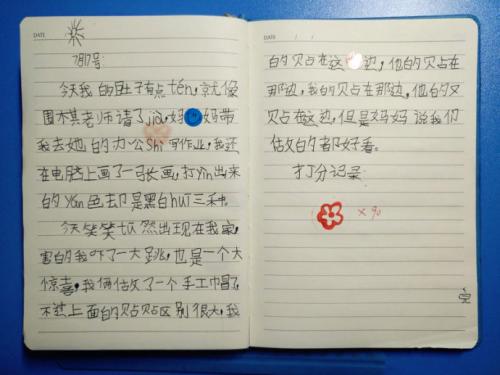 DATE
7月17号
今天我的肚子有点téng,就像
围棋老师请了jià,妈妈带
我去她的办公shì写作业,我还
在电脑上画了一张画,打yìn出来
的yán色却是黑白huī三种。
今天笑笑tū然出现在我家,
害的我吓了一大跳,也是一个大
惊喜,我俩做了一个手工巾冒了
不过上面的贝占贝占区别很大,我
DATE
的贝占在这边,他的贝占在
那边,我的贝占在那边,他的又
贝占在这边,但是妈妈说我们
做的都好看。
打分记录:
×90